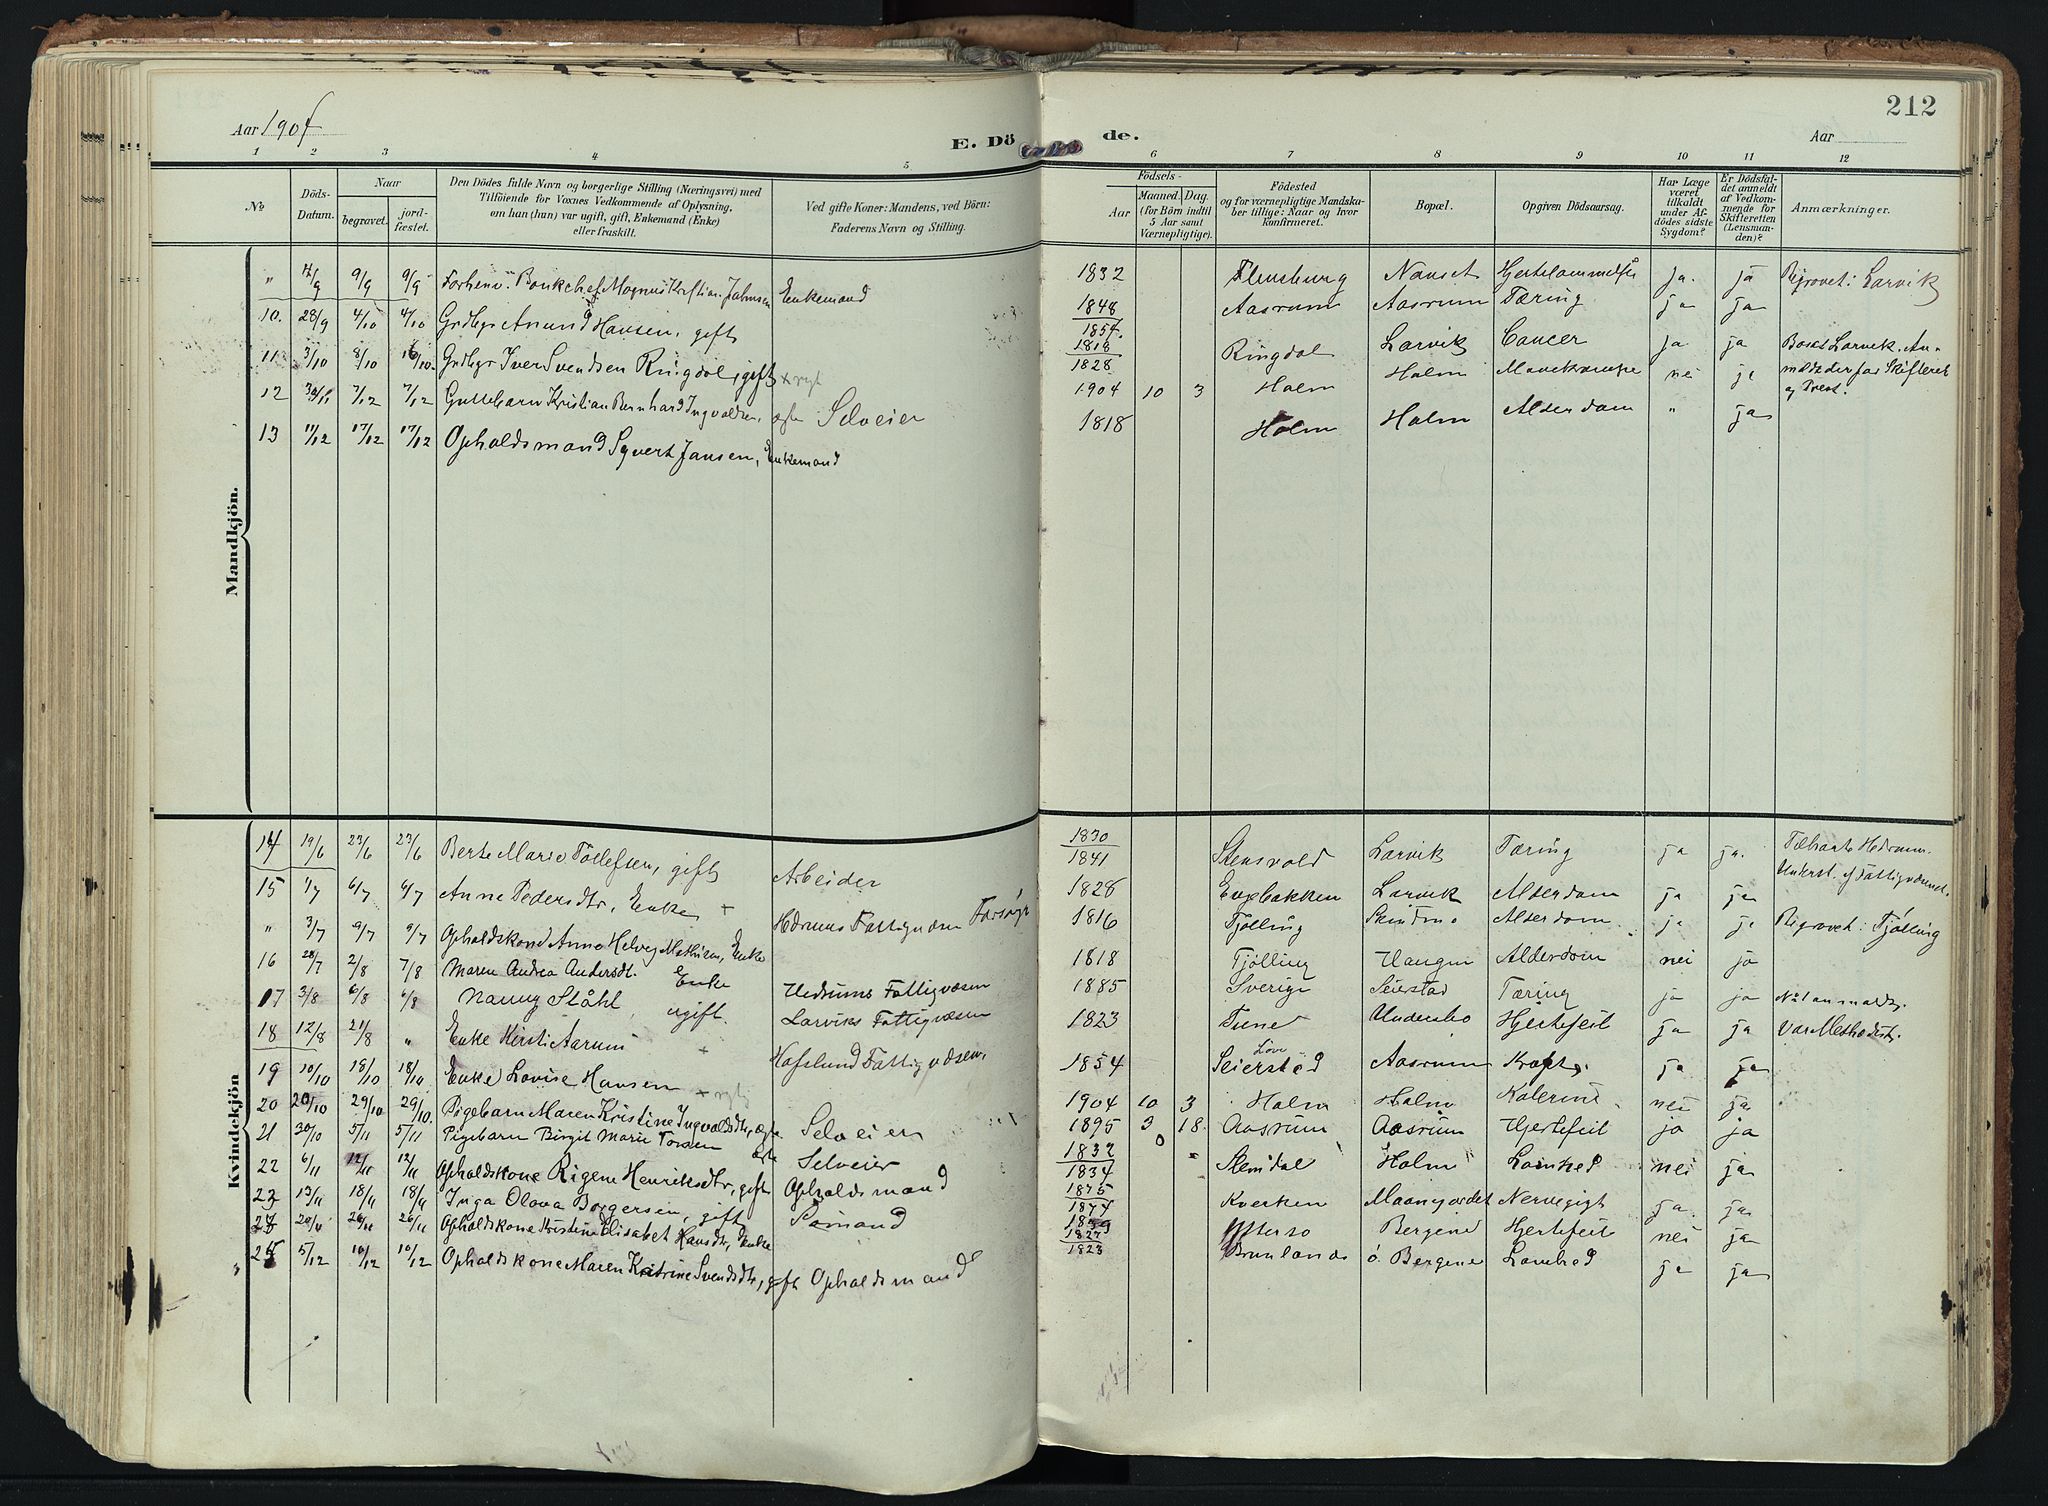 212
Aar 1904
E. Döde.
Aar
1 2 3 4 5 6 7 8 9 10 11 12
No.
Döds-Datum.
Naar
begravet. jordfæstet.
Den Dödes fulde Navn og borgerlige Stilling (Næringsvei) med
Tilföiende for Voxnes Vedkommende af Oplysning,
om han (hun) var ugift, gift, Enkemand (Enke)
eller fraskilt.
Ved gifte Koner: Mandens, ved Börn:
Faderens Navn og Stilling.
Födsels-
Aar
Maaned. Dag.
(for Börn indtil
5 Aar samt
Værnepligtige).
Födested
og for værnepligtige Mandska-
ber tillige: Naar og hvor
konfirmeret.
Bopæl.
Opgiven Dödsaarsag.
Har Læge
været
tilkaldt
under Af-
dödes sidste
Sygdom?
Er Dödsfal-
det anmeldt
af Vedkom-
mende for
Skifteretten
(Lensman-
den)?
Anmærkninger.
Mandkjön.
" 4/9 9/9 9/9 Forhenv. Bankchef Magnus Kristian Jahnsen Enkemand 1832 Flensburg Nanset ja. ja Begravet i Larvik
10. 28/9 4/10 4/10 Grdbgr Anund Hansen, gift 1848 Aasrum Aasrum Tæring ja ja
11 3/10 8/10 16/10. Grdbgr Iver Svendsen Ringdal, gift 1854 1818 1828 Ringdal Larvik Cancer ja ja Bosat Larvik. An-
meldt der for Skifteret
12 30/11 7/12 7/12 Guttebarn Kristian Bernhard Ingvaldsen, ægte Selveier 1904 10 3 Holm Holm nei ja
13 11/12 17/12 17/12 Opholdsmand Syvert Jansen, Enkemand 1818 Holm Holm Alderdom " ja
Kvindekjön
14 19/6 23/6 23/6 Berte Marie Tollefsen, gift Arbeider 1830 1841 Stensvold Larvik Tæring ja ja. Tilhørte Hedrum.
Underst. af Fattigvæsenet.
15 1/7 6/7 6/7 Anne Pedersdtr, Enke + Hedrums Fattigvæsen Forsørg 1828 Engebakken Larvik Alderdom ja ja
" 3/7 9/7 9/7 Opholdskone Anne Helvig Mathisen, Enke 1816 Tjølling Alderdom. ja ja Begravet i Tjølling
16 28/7 2/8 7/8 Maren Andrea Andersdt. Enke Hedrums Fattigvæsen 1818 Tjølling Haugen Alderdom nei ja
17 3/8 6/8 6/8 Nanny Ståhl, ugift. Larviks Fattigvæsen 1885 Sverige Seierstad Tæring ja ja
18 12/8 21/8 " Enke Kirsti Aarum + Hafslund Fattigvæsen, 1823 Tune Hjertefeil ja ja Var Methodist.
19 10/10 18/10 18/10 Enke Lovise Hansen 1854 Seiersted Aasrum Kræft. ja ja
20 20/10 29/10 29/10. Pigebarn Maren Kristine Ingvaldsdtr, ægte Selveier 1904 10 3 Holm Holm Kolerine nei ja
21 30/10 5/11 5/11 Pigebarn Birgit Marie Torsen ægte Selveier 1895 3 18. Aasrum Aasrum Hjertefeil ja ja
22 6/11 12/11 12/11 Opholdskone Rigene Henriksdtr, gift Opholdsmand 1832 1834 Stendal Holm nei ja
23 13/11 18/11 18/11 Inga Olava Borgersen, gift Sømand 1875 1874 Kverken Maanejordet Nervegigt ja. ja.
24 20/11 26/11 26/11 Opholdskone Kristine Elisabet Hansdtr, Enke 1827 Ytterso Bergene Hjertefeil nei ja
25 5/12 10/12 10/12 Opholdskone Maren Katrine Svendsdtr, gift Opholdsmand 1823 Brunlands ö. Bergene ja ja